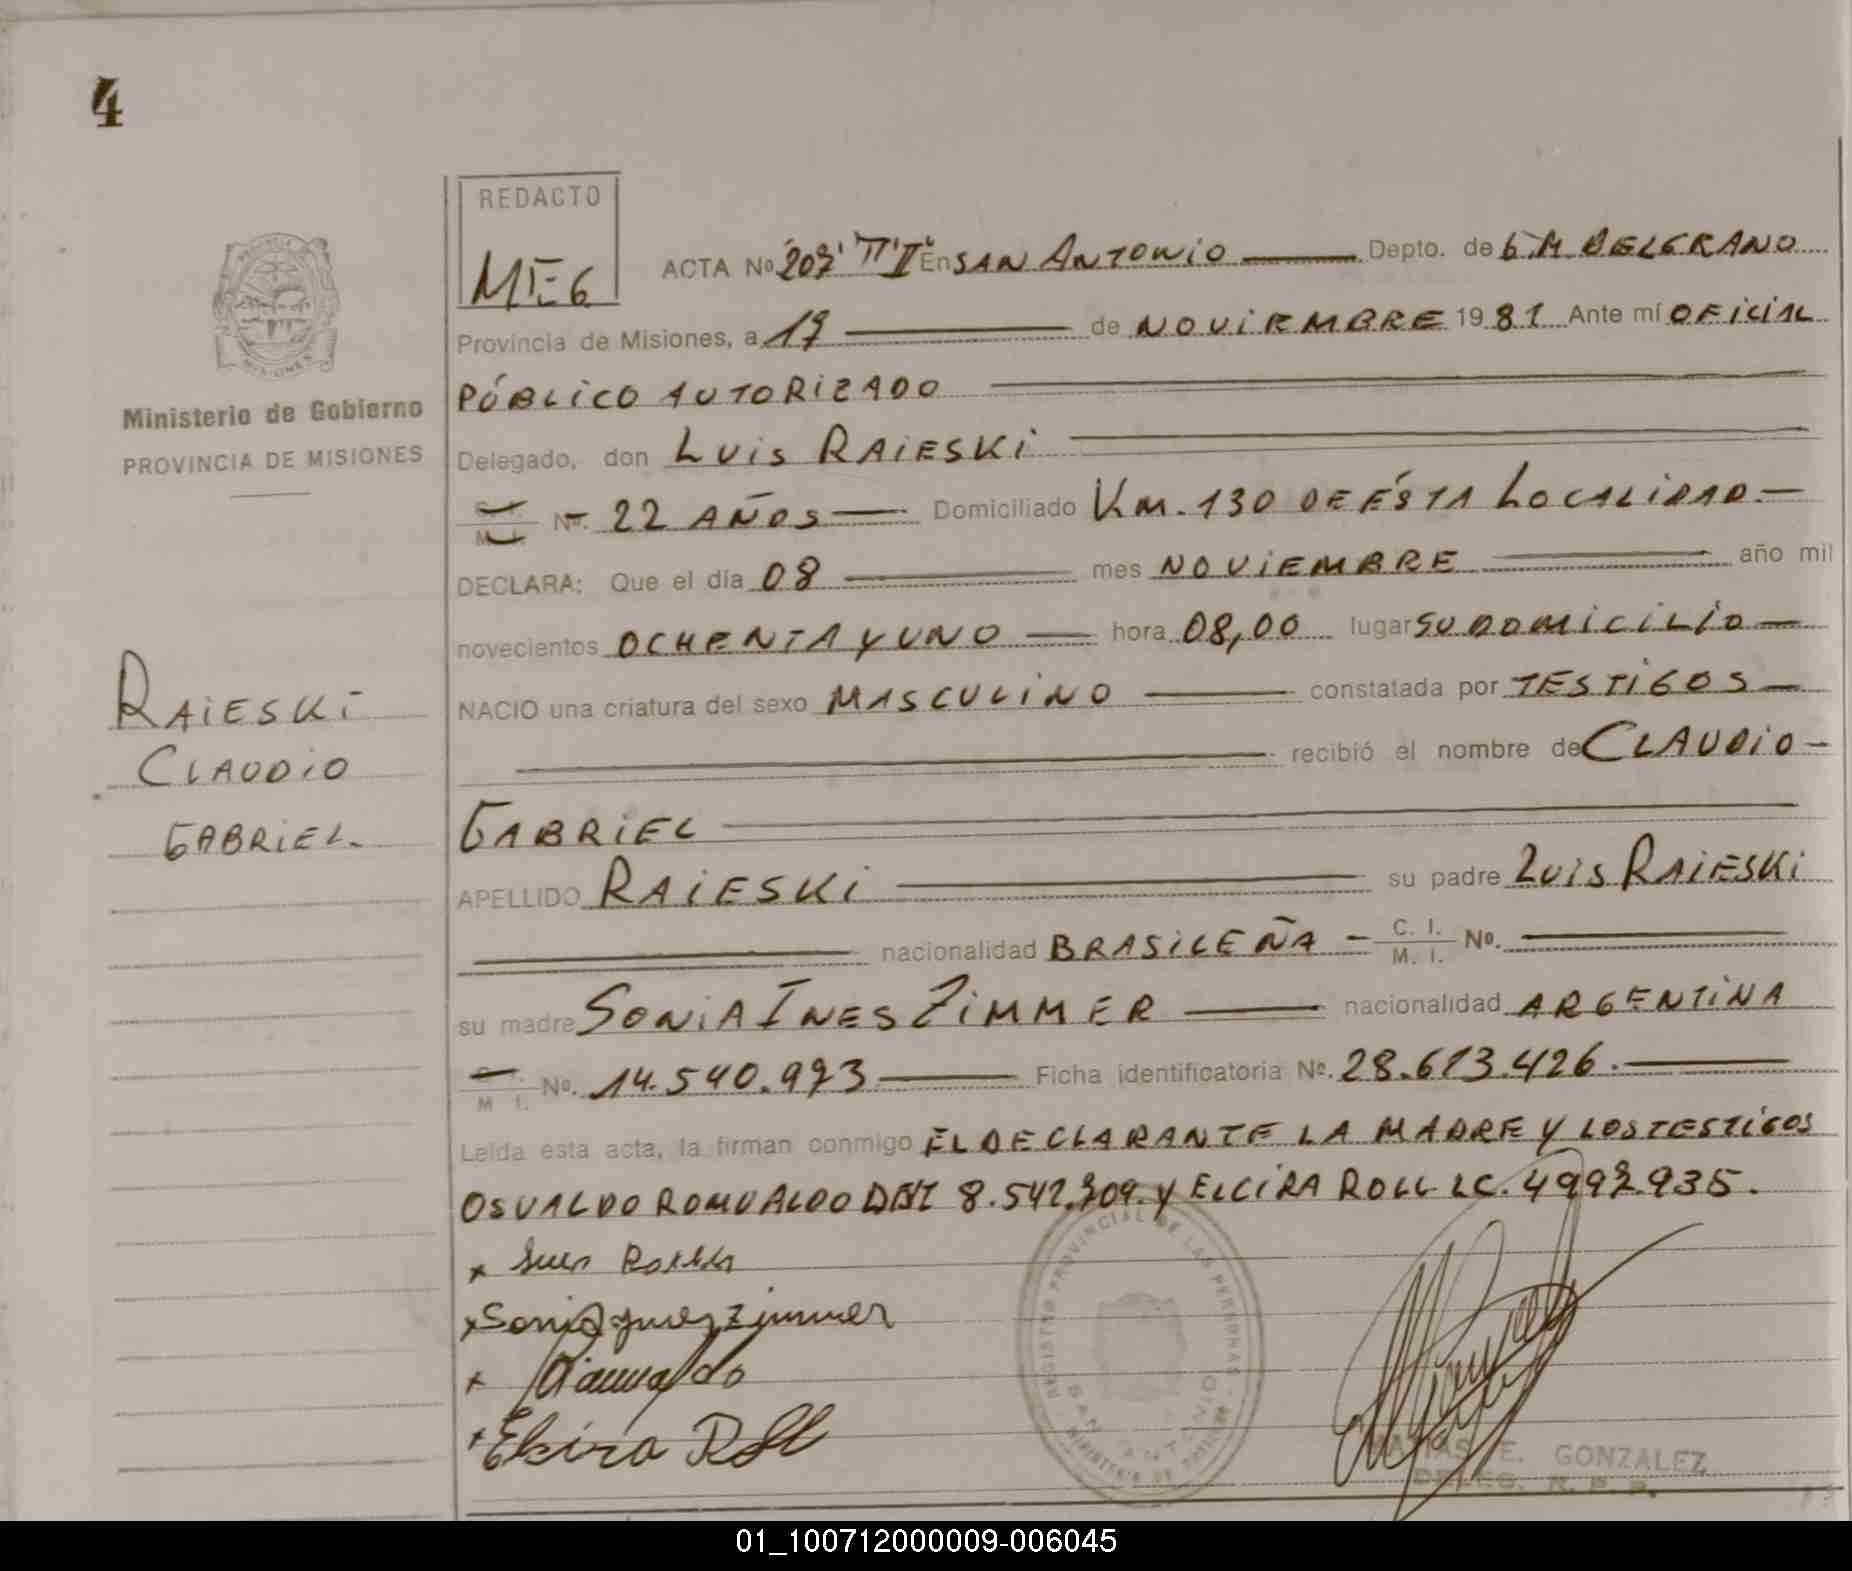 4
REDACTO
MEG
ACTA Nº 207 "T" II En SAN ANTONIO Depto. de G. M. BELGRANO
Provincia de Misiones, a 17 de NOVIEMBRE 1981 Ante mí OFICIAL
PÚBLICO AUTORIZADO
Ministerio de Gobierno
PROVINCIA DE MISIONES
Delegado, don LUIS RAIESKI
M. I. Nº. 22 AÑOS Domiciliado KM. 130 DE ÉSTA LOCALIDAD.
DECLARA: Que el día 08 mes NOVIEMBRE año mil
novecientos OCHENTA Y UNO hora 08,00 lugar SU DOMICILIO
NACIO una criatura del sexo MASCULINO constatada por TESTIGOS
recibió el nombre de CLAUDIO
GABRIEL
RAIESKI
CLAUDIO
GABRIEL.
APELLIDO RAIESKI su padre LUIS RAIESKI
nacionalidad BRASILEÑA C. I. M. I. Nº.
su madre SONIA INES ZIMMER nacionalidad ARGENTINA
M. I. Nº. 14.540.973 Ficha identificatoria Nº. 28.613.426.
Leída esta acta, la firman conmigo EL DECLARANTE LA MADRE Y LOS TESTIGOS
OSVALDO ROMUALDO DNI 8.542.709. Y ELCIRA ROLL LC. 4997.935.
x Luis
x Sonia Ines Zimmer
x Romualdo
x Elcira Roll
REGISTRO PROVINCIAL DE LAS PERSONAS
SAN ANTONIO
MINISTERIO DE GOBIERNO
MATIAS E. GONZALEZ
DELEG. R. P. P.
01_100712000009-006045